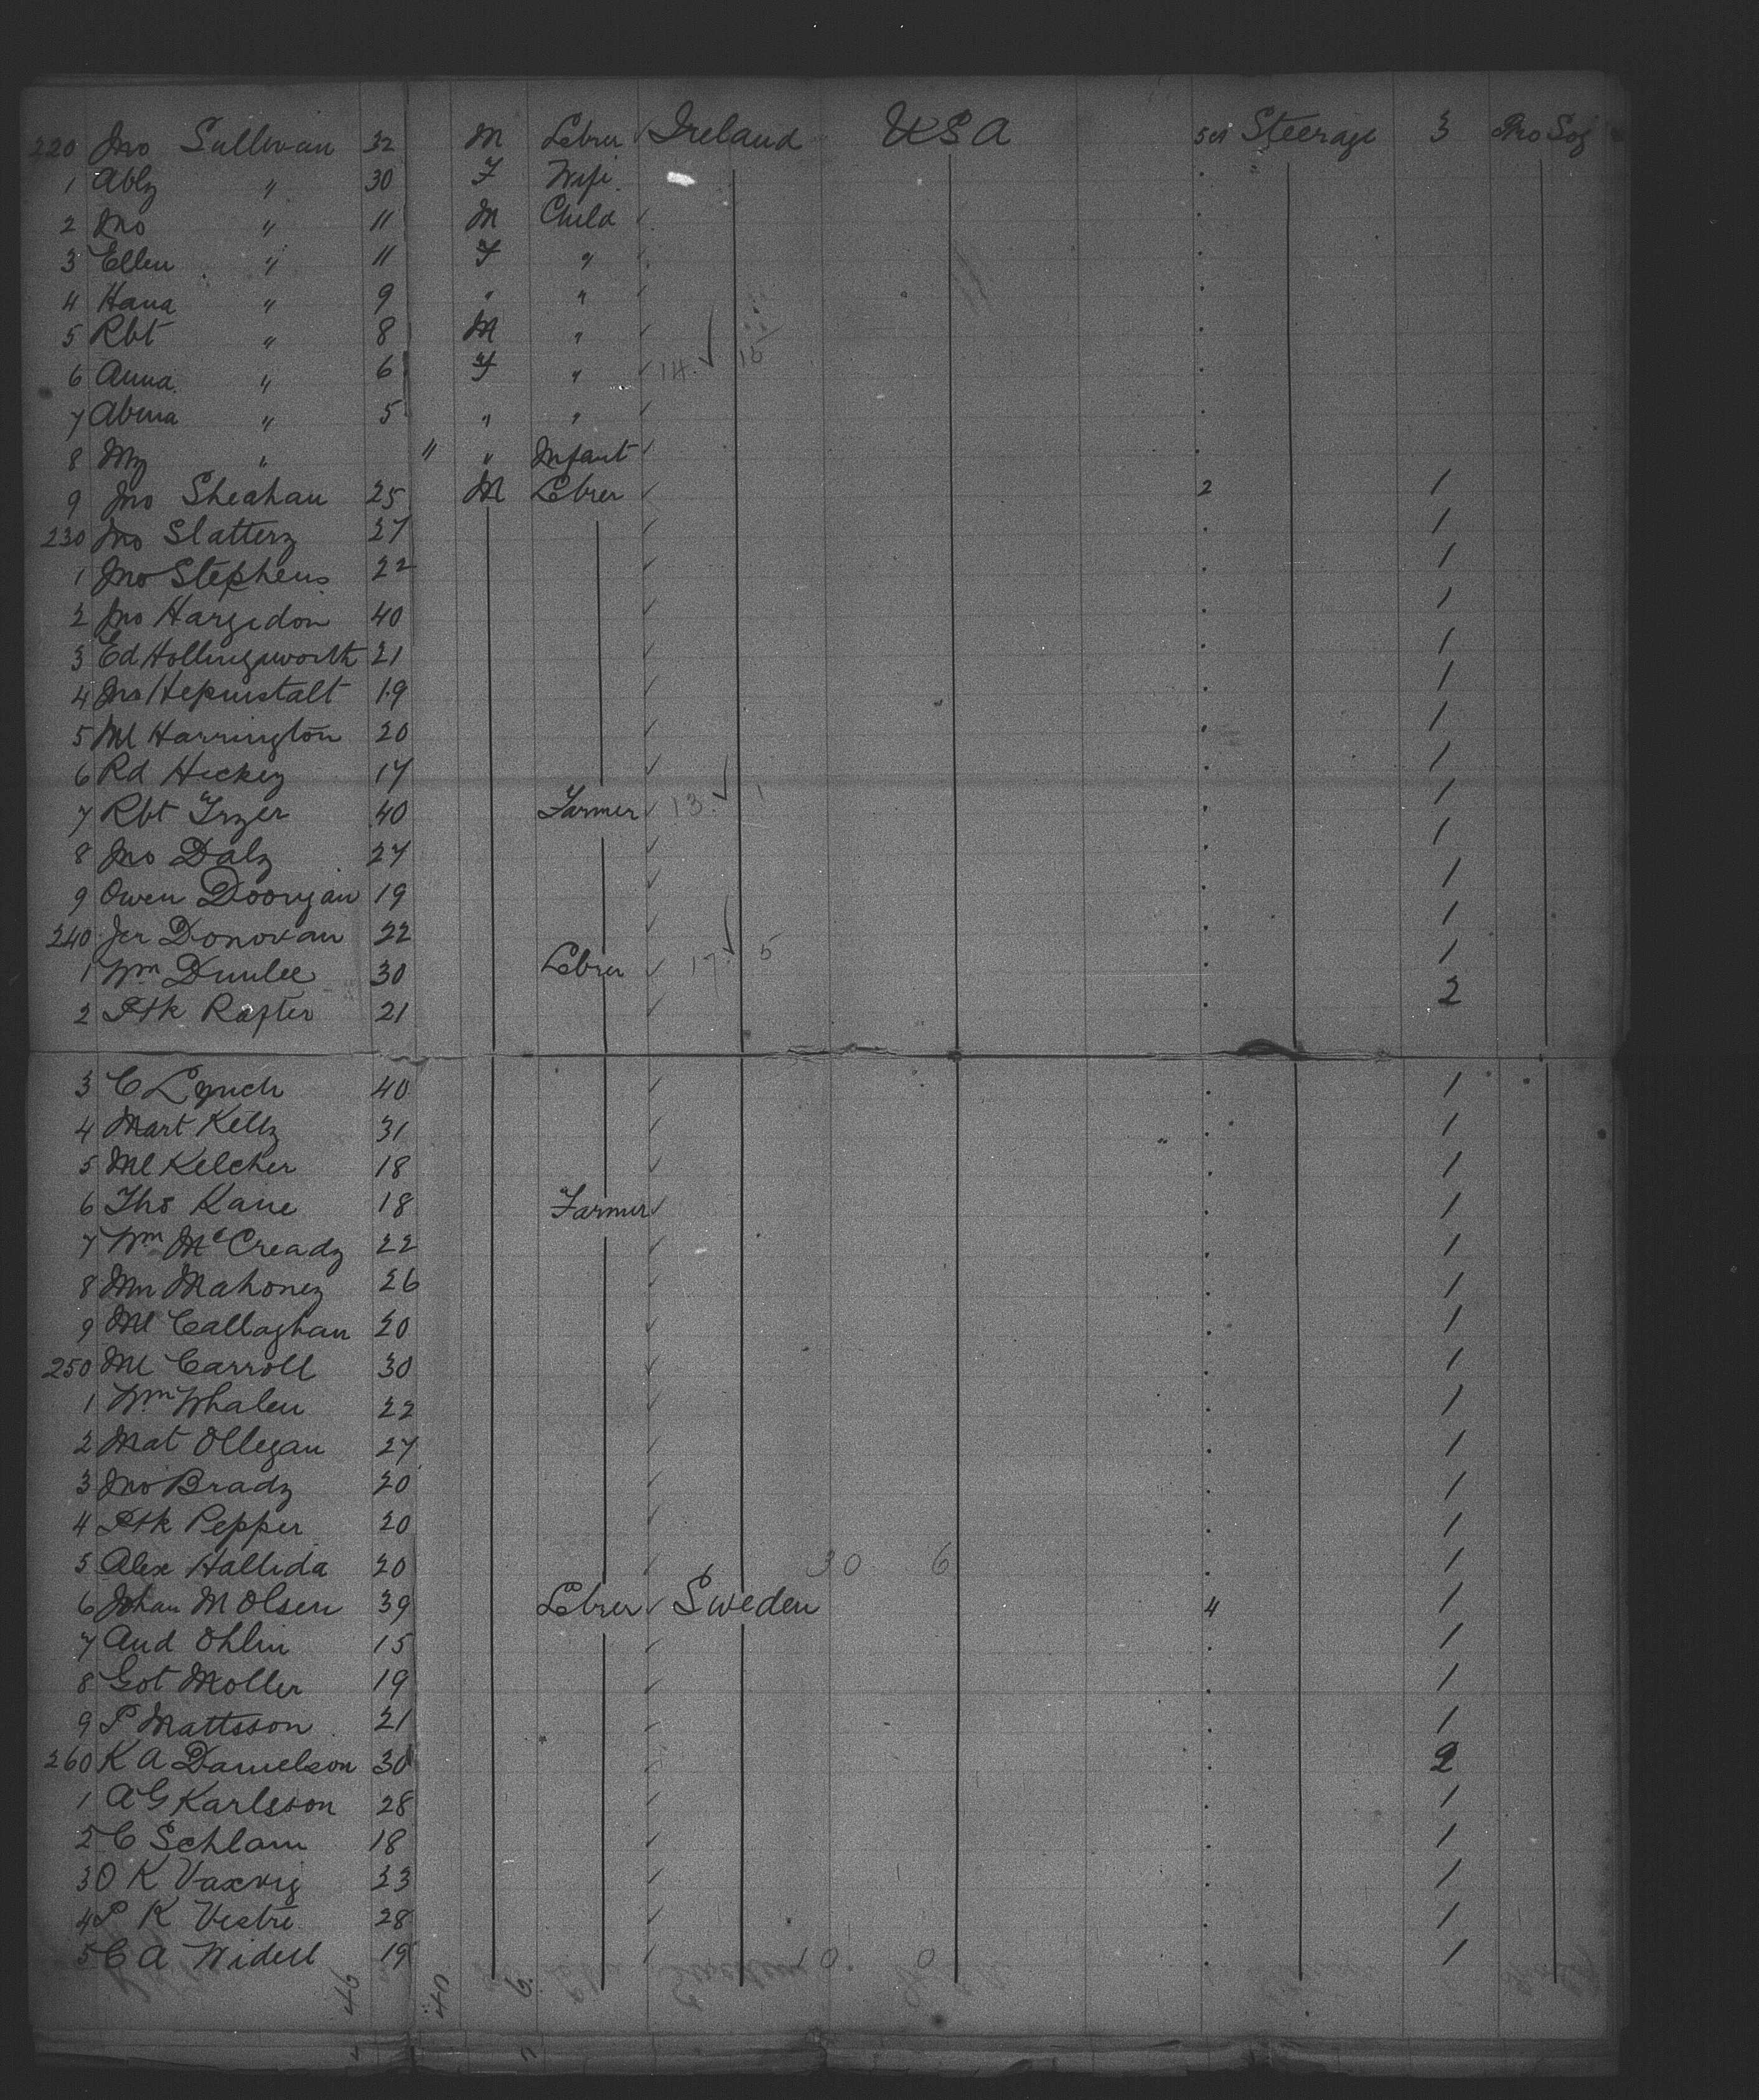 220 Jno Sullivan 32 M Lebrer Ireland USA Steerage 3 Pro Soj
1 Abby " 30 F Wife
2 Jno " 11 M Child
3 Ellen " 11 F "
4 Hana " 9 " "
5 Rbt " 8 M "
6 Anna " 6 F " 14 15
7 Abina " 5 " "
8 My " " " Infant
9 Jno Sheahan 25 M Lebrer 2 1
230 Jno Slattery 27 1
1 Jno Stephens 22 1
2 Jno Hargedon 40 1
3 Ed Hollingsworth 21 1
4 Jno Hepinstalt 19 1
5 Ml Harrington 20 1
6 Rd Hickey 17 1
7 Rbt Fryer 40 Farmer 13 1 1
8 Jno Daly 27 1
9 Owen 19 1
240 Jer Donovan 22 1
1 Wm Dunlee 30 Lebrer 17 5 1
2 Ptk Rafter 21 2
3 C Lynch 40 1
4 Mart Kelly 31 1
5 Ml Kelcher 18 1
6 Tho Kane 18 Farmer 1
7 Wm McCready 22 1
8 Mahoney 26 1
9 Ml Callaghan 20 1
250 Ml Carroll 30 1
1 Wm Whalen 22 1
2 Mat Ollegan 27 1
3 Jno Brady 20 1
4 Ptk Pepper 20 1
5 Alex Hallida 20 30 6 1
6 Johan M Olsen 39 Lebrer Sweden 4 1
7 And Ohlin 15 1
8 Got Moller 19 1
9 P Mattsson 21 1
260 K A Danielson 30 2
1 A G Karlsson 28 1
2 C Schlam 18 1
3 O K Vaxvig 23 1
4 P K Vestre 28 1
5 C A Widell 19 10 0 1
46 40